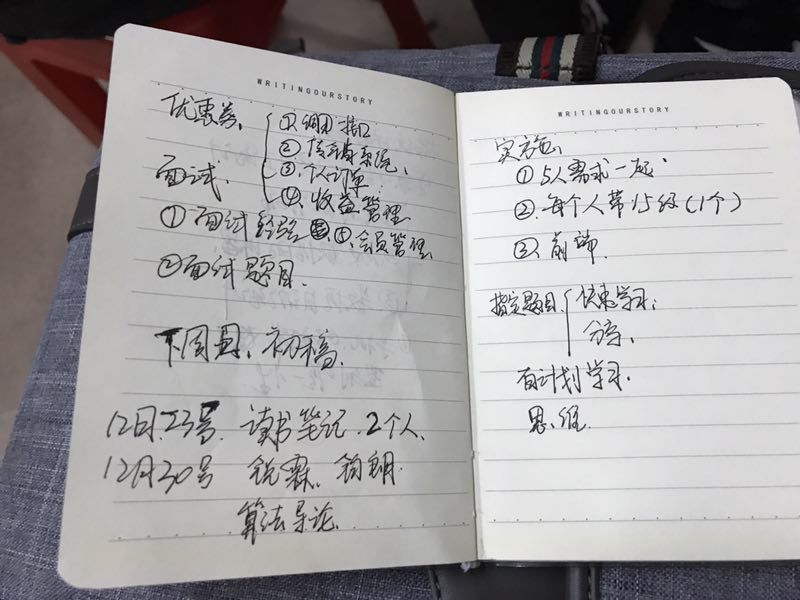 WRITINGOURSTORY
优惠券、 ①、调用接口
② 信息系统、
面试、 ③、个人订单、
④、收益管理
① 面试经验 ⑤、会员管理
② 面试题目.
下周四、初稿、
12月23号、读书笔记、2个人、
12月30号 锐霖、钧翔
算法导论
WRITINGOURSTORY
实施、
① 5人需求一起、
② 每个人带15级(1个)
③、前端、
指定题目、 快速学习;
分享、
有计划学习、
思维